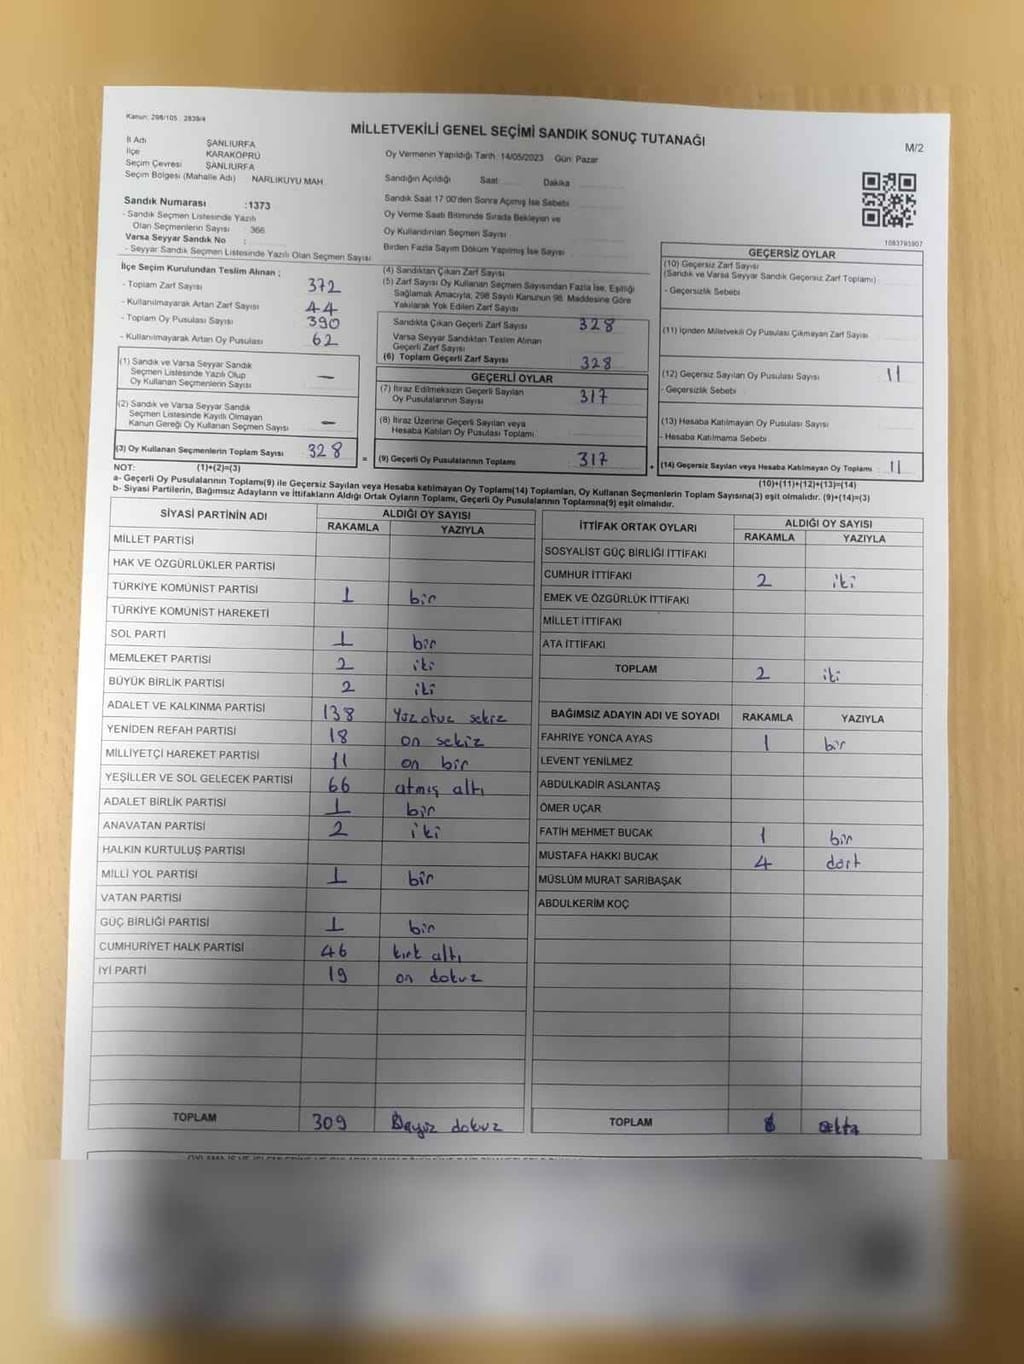 Kanun: 298/105 2839/4
MİLLETVEKİLİ GENEL SEÇİMİ SANDIK SONUÇ TUTANAĞI
M/2
İl Adı ŞANLIURFA
İlçe KARAKÖPRÜ
Seçim Çevresi ŞANLIURFA
Seçim Bölgesi (Mahalle Adı) NARLIKUYU MAH.
Oy Vermenin Yapıldığı Tarih :14/05/2023 Gün: Pazar
Sandığın Açıldığı Saat: Dakika
Sandık Saat 17:00'den Sonra Açılmış İse Sebebi
Oy Verme Saati Bitiminde Sırada Bekleyen ve
Oy Kullandırılan Seçmen Sayısı
Birden Fazla Sayım Döküm Yapılmış İse Sayısı
Sandık Numarası :1373
- Sandık Seçmen Listesinde Yazılı
Olan Seçmenlerin Sayısı 366
Varsa Seyyar Sandık No :
- Seyyar Sandık Seçmen Listesinde Yazılı Olan Seçmen Sayısı
1083793907
İlçe Seçim Kurulundan Teslim Alınan :
- Toplam Zarf Sayısı 372
- Kullanılmayarak Artan Zarf Sayısı 44
- Toplam Oy Pusulası Sayısı 390
- Kullanılmayarak Artan Oy Pusulası 62
(1) Sandık ve Varsa Seyyar Sandık
Seçmen Listesinde Yazılı Olup
Oy Kullanan Seçmenlerin Sayısı —
(2) Sandık ve Varsa Seyyar Sandık
Seçmen Listesinde Kayıtlı Olmayan
Kanun Gereği Oy Kullanan Seçmen Sayısı —
(3) Oy Kullanan Seçmenlerin Toplam Sayısı 328
(4) Sandıktan Çıkan Zarf Sayısı
(5) Zarf Sayısı Oy Kullanan Seçmen Sayısından Fazla İse, Eşitliği
Sağlamak Amacıyla, 298 Sayılı Kanunun 98. Maddesine Göre
Yakılarak Yok Edilen Zarf Sayısı
Sandıkta Çıkan Geçerli Zarf Sayısı 328
Varsa Seyyar Sandıktan Teslim Alınan
Geçerli Zarf Sayısı
(6) Toplam Geçerli Zarf Sayısı 328
GEÇERLİ OYLAR
(7) İtiraz Edilmeksizin Geçerli Sayılan
Oy Pusulalarının Sayısı 317
(8) İtiraz Üzerine Geçerli Sayılan veya
Hesaba Katılan Oy Pusulası Toplamı
= (9) Geçerli Oy Pusulalarının Toplamı 317
GEÇERSİZ OYLAR
(10) Geçersiz Zarf Sayısı
(Sandık ve Varsa Seyyar Sandık Geçersiz Zarf Toplamı)
- Geçersizlik Sebebi
(11) İçinden Milletvekili Oy Pusulası Çıkmayan Zarf Sayısı
(12) Geçersiz Sayılan Oy Pusulası Sayısı 11
- Geçersizlik Sebebi
(13) Hesaba Katılmayan Oy Pusulası Sayısı
- Hesaba Katılmama Sebebi
+ (14) Geçersiz Sayılan veya Hesaba Katılmayan Oy Toplamı 11
NOT: (1)+(2)=(3) (10)+(11)+(12)+(13)=(14)
a- Geçerli Oy Pusulalarının Toplamı(9) ile Geçersiz Sayılan veya Hesaba katılmayan Oy Toplamı(14) Toplamları, Oy Kullanan Seçmenlerin Toplam Sayısına(3) eşit olmalıdır. (9)+(14)=(3)
b- Siyasi Partilerin, Bağımsız Adayların ve İttifakların Aldığı Ortak Oyların Toplamı, Geçerli Oy Pusulalarının Toplamına(9) eşit olmalıdır.
SİYASİ PARTİNİN ADI ALDIĞI OY SAYISI
RAKAMLA YAZIYLA
MİLLET PARTİSİ
HAK VE ÖZGÜRLÜKLER PARTİSİ
TÜRKİYE KOMÜNİST PARTİSİ 1 bir
TÜRKİYE KOMÜNİST HAREKETİ
SOL PARTİ 1 bir
MEMLEKET PARTİSİ 2 iki
BÜYÜK BİRLİK PARTİSİ 2 iki
ADALET VE KALKINMA PARTİSİ 138 Yüz otuz sekiz
YENİDEN REFAH PARTİSİ 18 on sekiz
MİLLİYETÇİ HAREKET PARTİSİ 11 on bir
YEŞİLLER VE SOL GELECEK PARTİSİ 66 atmış altı
ADALET BİRLİK PARTİSİ 1 bir
ANAVATAN PARTİSİ 2 iki
HALKIN KURTULUŞ PARTİSİ
MİLLİ YOL PARTİSİ 1 bir
VATAN PARTİSİ
GÜÇ BİRLİĞİ PARTİSİ 1 bir
CUMHURİYET HALK PARTİSİ 46 kırk altı
İYİ PARTİ 19 on dokuz
TOPLAM 309 dokuz
İTTİFAK ORTAK OYLARI ALDIĞI OY SAYISI
RAKAMLA YAZIYLA
SOSYALİST GÜÇ BİRLİĞİ İTTİFAKI
CUMHUR İTTİFAKI 2 iki
EMEK VE ÖZGÜRLÜK İTTİFAKI
MİLLET İTTİFAKI
ATA İTTİFAKI
TOPLAM 2 iki
BAĞIMSIZ ADAYIN ADI VE SOYADI RAKAMLA YAZIYLA
FAHRİYE YONCA AYAS 1 bir
LEVENT YENİLMEZ
ABDULKADİR ASLANTAŞ
ÖMER UÇAR
FATİH MEHMET BUCAK 1 bir
MUSTAFA HAKKI BUCAK 4 dört
MÜSLÜM MURAT SARIBAŞAK
ABDULKERİM KOÇ
TOPLAM